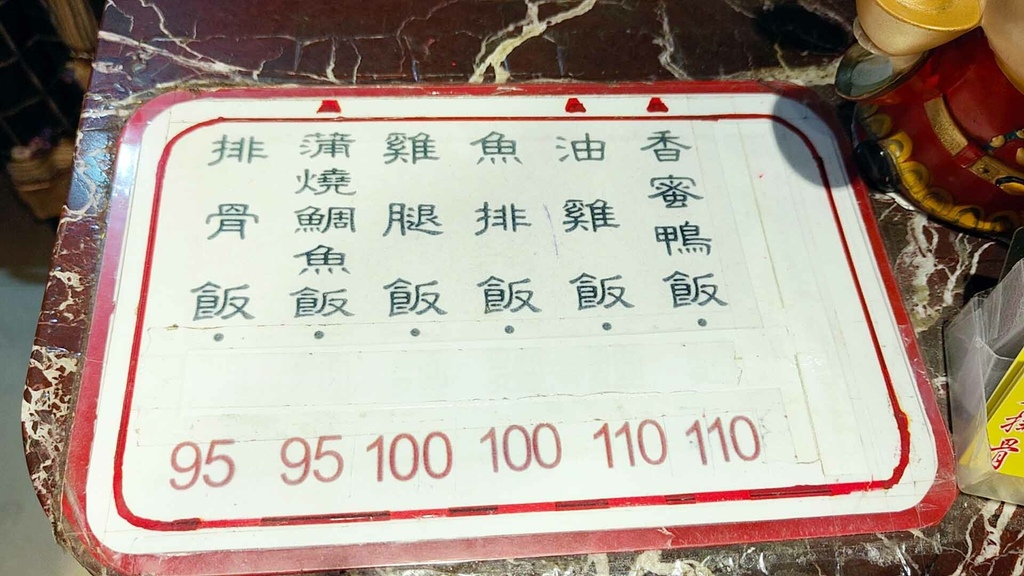 香蜜鴨飯
110
油雞飯
110
魚排飯
100
雞腿飯
100
蒲燒鯛魚飯
95
排骨飯
95
排骨